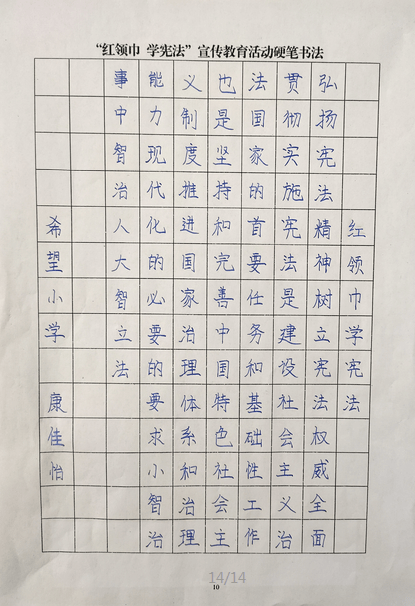 “红领巾 学宪法”宣传教育活动硬笔书法
红领巾学宪法
弘扬宪法精神树立宪法权威全面
贯彻实施宪法是建设社会主义治
法国家的首要任务和基础性工作
也是坚持和完善中国特色社会主
义制度推进国家治理体系和治理
能力现代化的必要的要求小智治
事中智治人大智立法
希望小学 康佳怡
14/14
10